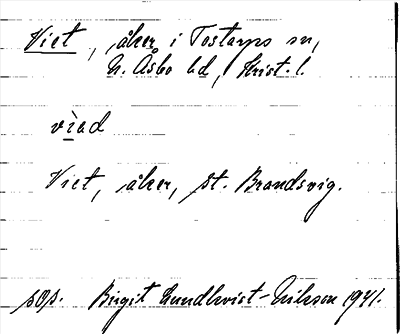 Viet, åker i Tostarps sn,
N. Åsbo hd, Krist. l.
vìad
Viet, åker, St. Brandsvig.
sOp. Birgit Lundkvist-Nilsson 1941.